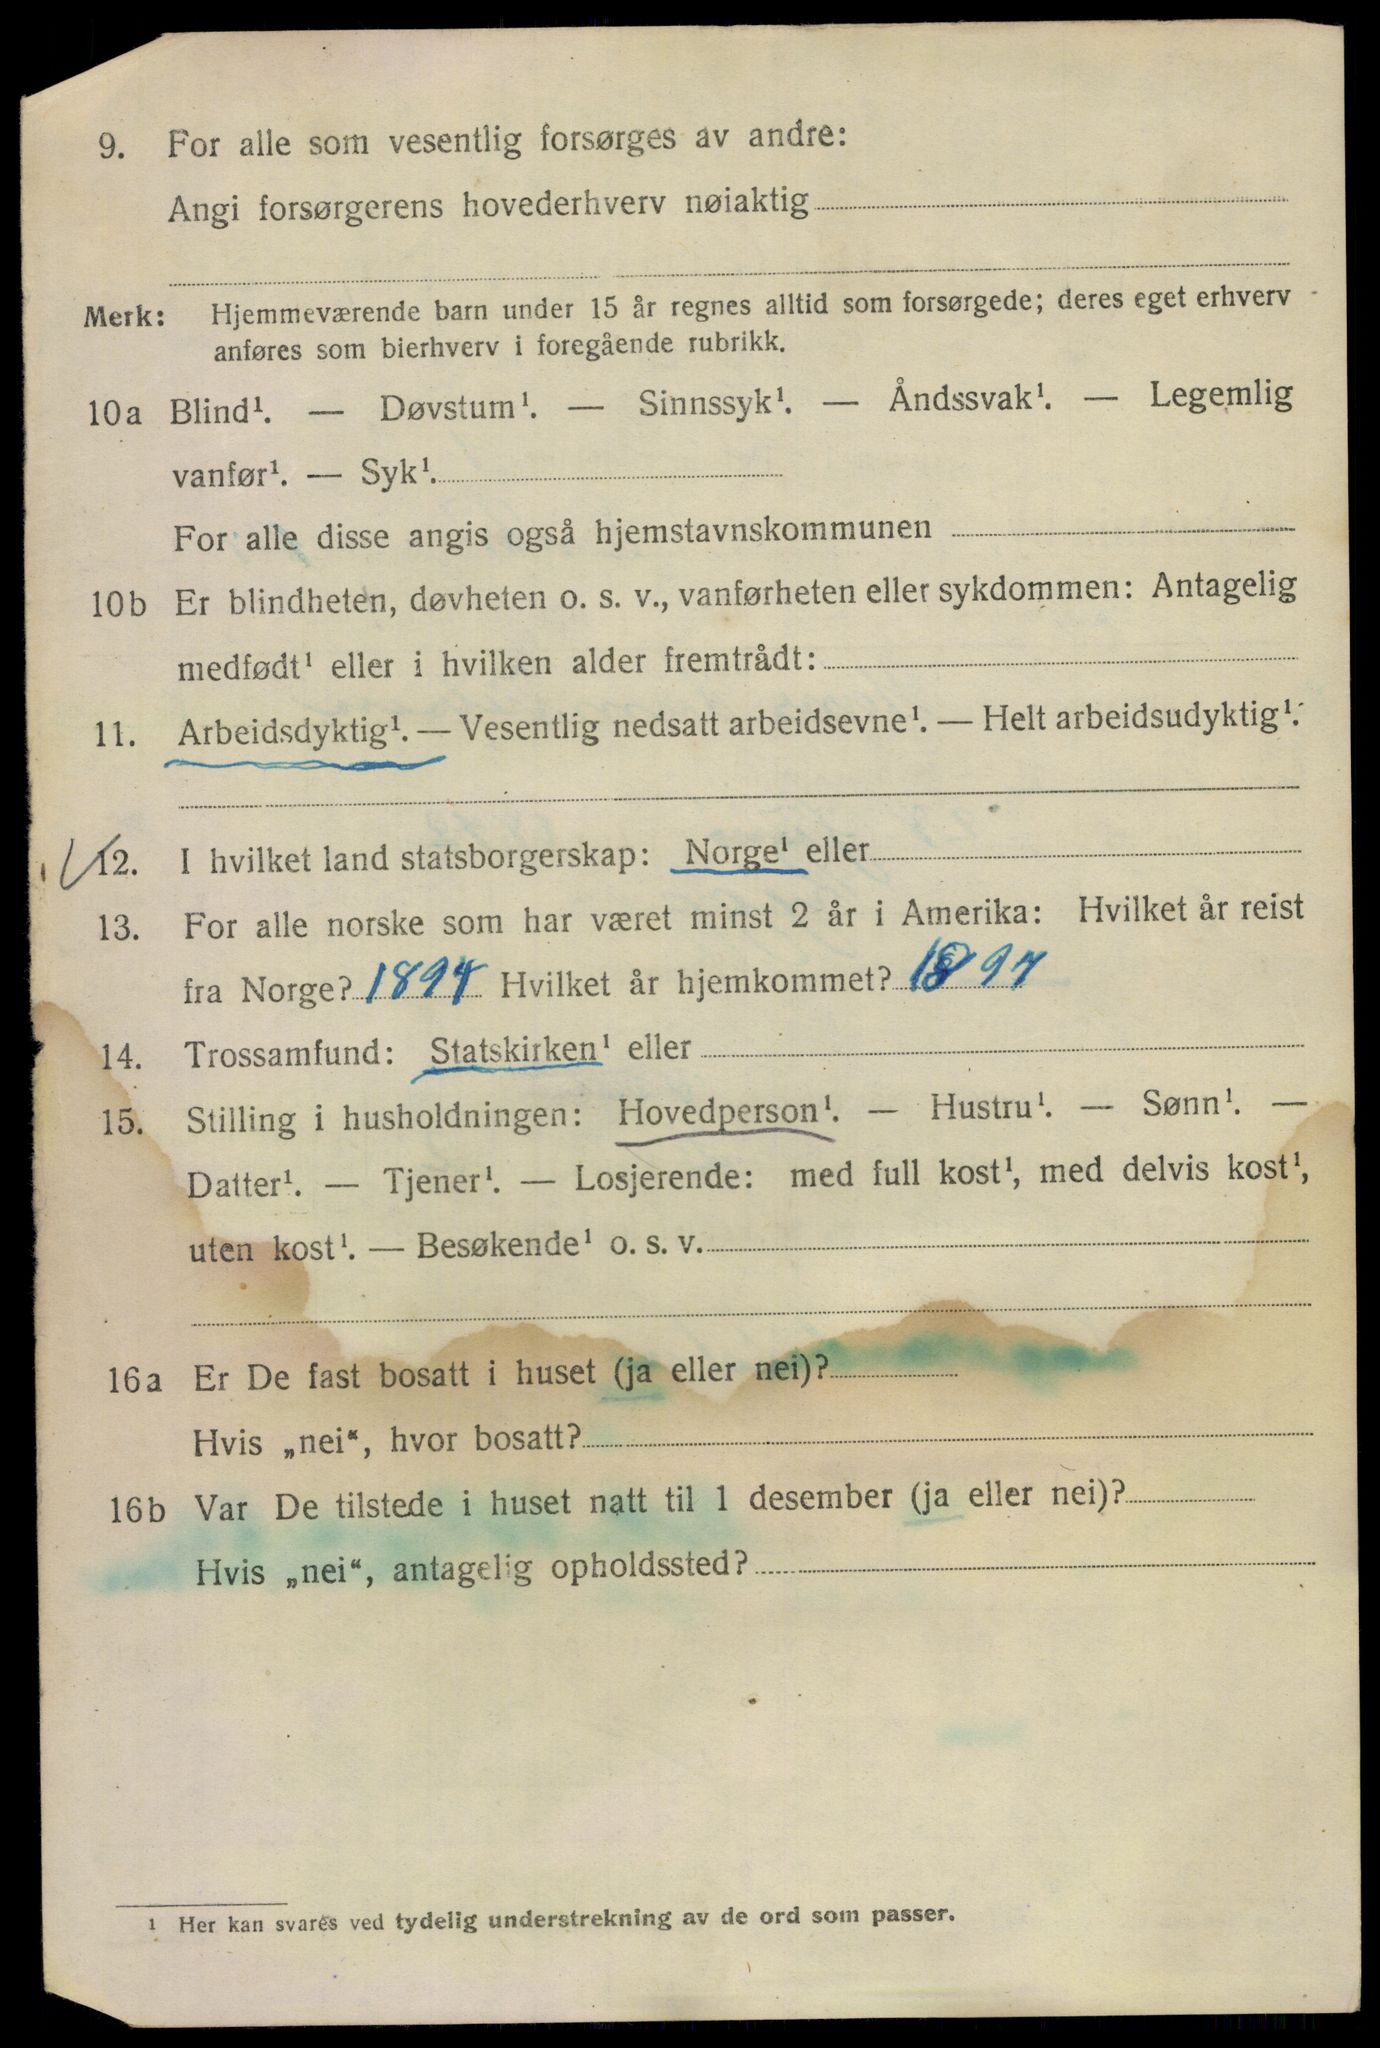 9. For alle som vesentlig forsørges av andre:
Angi forsørgerens hovederhverv nøiaktig
Merk: Hjemmeværende barn under 15 år regnes alltid som forsørgede; deres eget erhverv
anføres som bierhverv i foregående rubrikk.
10a Blind¹. — Døvstum¹. — Sinnssyk¹. — Åndssvak¹. — Legemlig
vanfør¹. — Syk¹.
For alle disse angis også hjemstavnskommunen
10b Er blindheten, døvheten o. s. v., vanførheten eller sykdommen: Antagelig
medfødt¹ eller i hvilken alder fremtrådt:
11. Arbeidsdyktig¹. — Vesentlig nedsatt arbeidsevne¹. — Helt arbeidsudyktig¹.
12. I hvilket land statsborgerskap: Norge¹ eller
13. For alle norske som har været minst 2 år i Amerika: Hvilket år reist
fra Norge? 1894 Hvilket år hjemkommet? 1897
14. Trossamfund: Statskirken¹ eller
15. Stilling i husholdningen: Hovedperson¹. — Hustru¹. — Sønn¹. —
Datter¹. — Tjener¹. — Losjerende: med full kost¹, med delvis kost¹,
uten kost¹. — Besøkende¹ o. s. v.
16a Er De fast bosatt i huset (ja eller nei)?
Hvis „nei“, hvor bosatt?
16b Var De tilstede i huset natt til 1 desember (ja eller nei)?
Hvis „nei“, antagelig opholdssted?
¹ Her kan svares ved tydelig understrekning av de ord som passer.